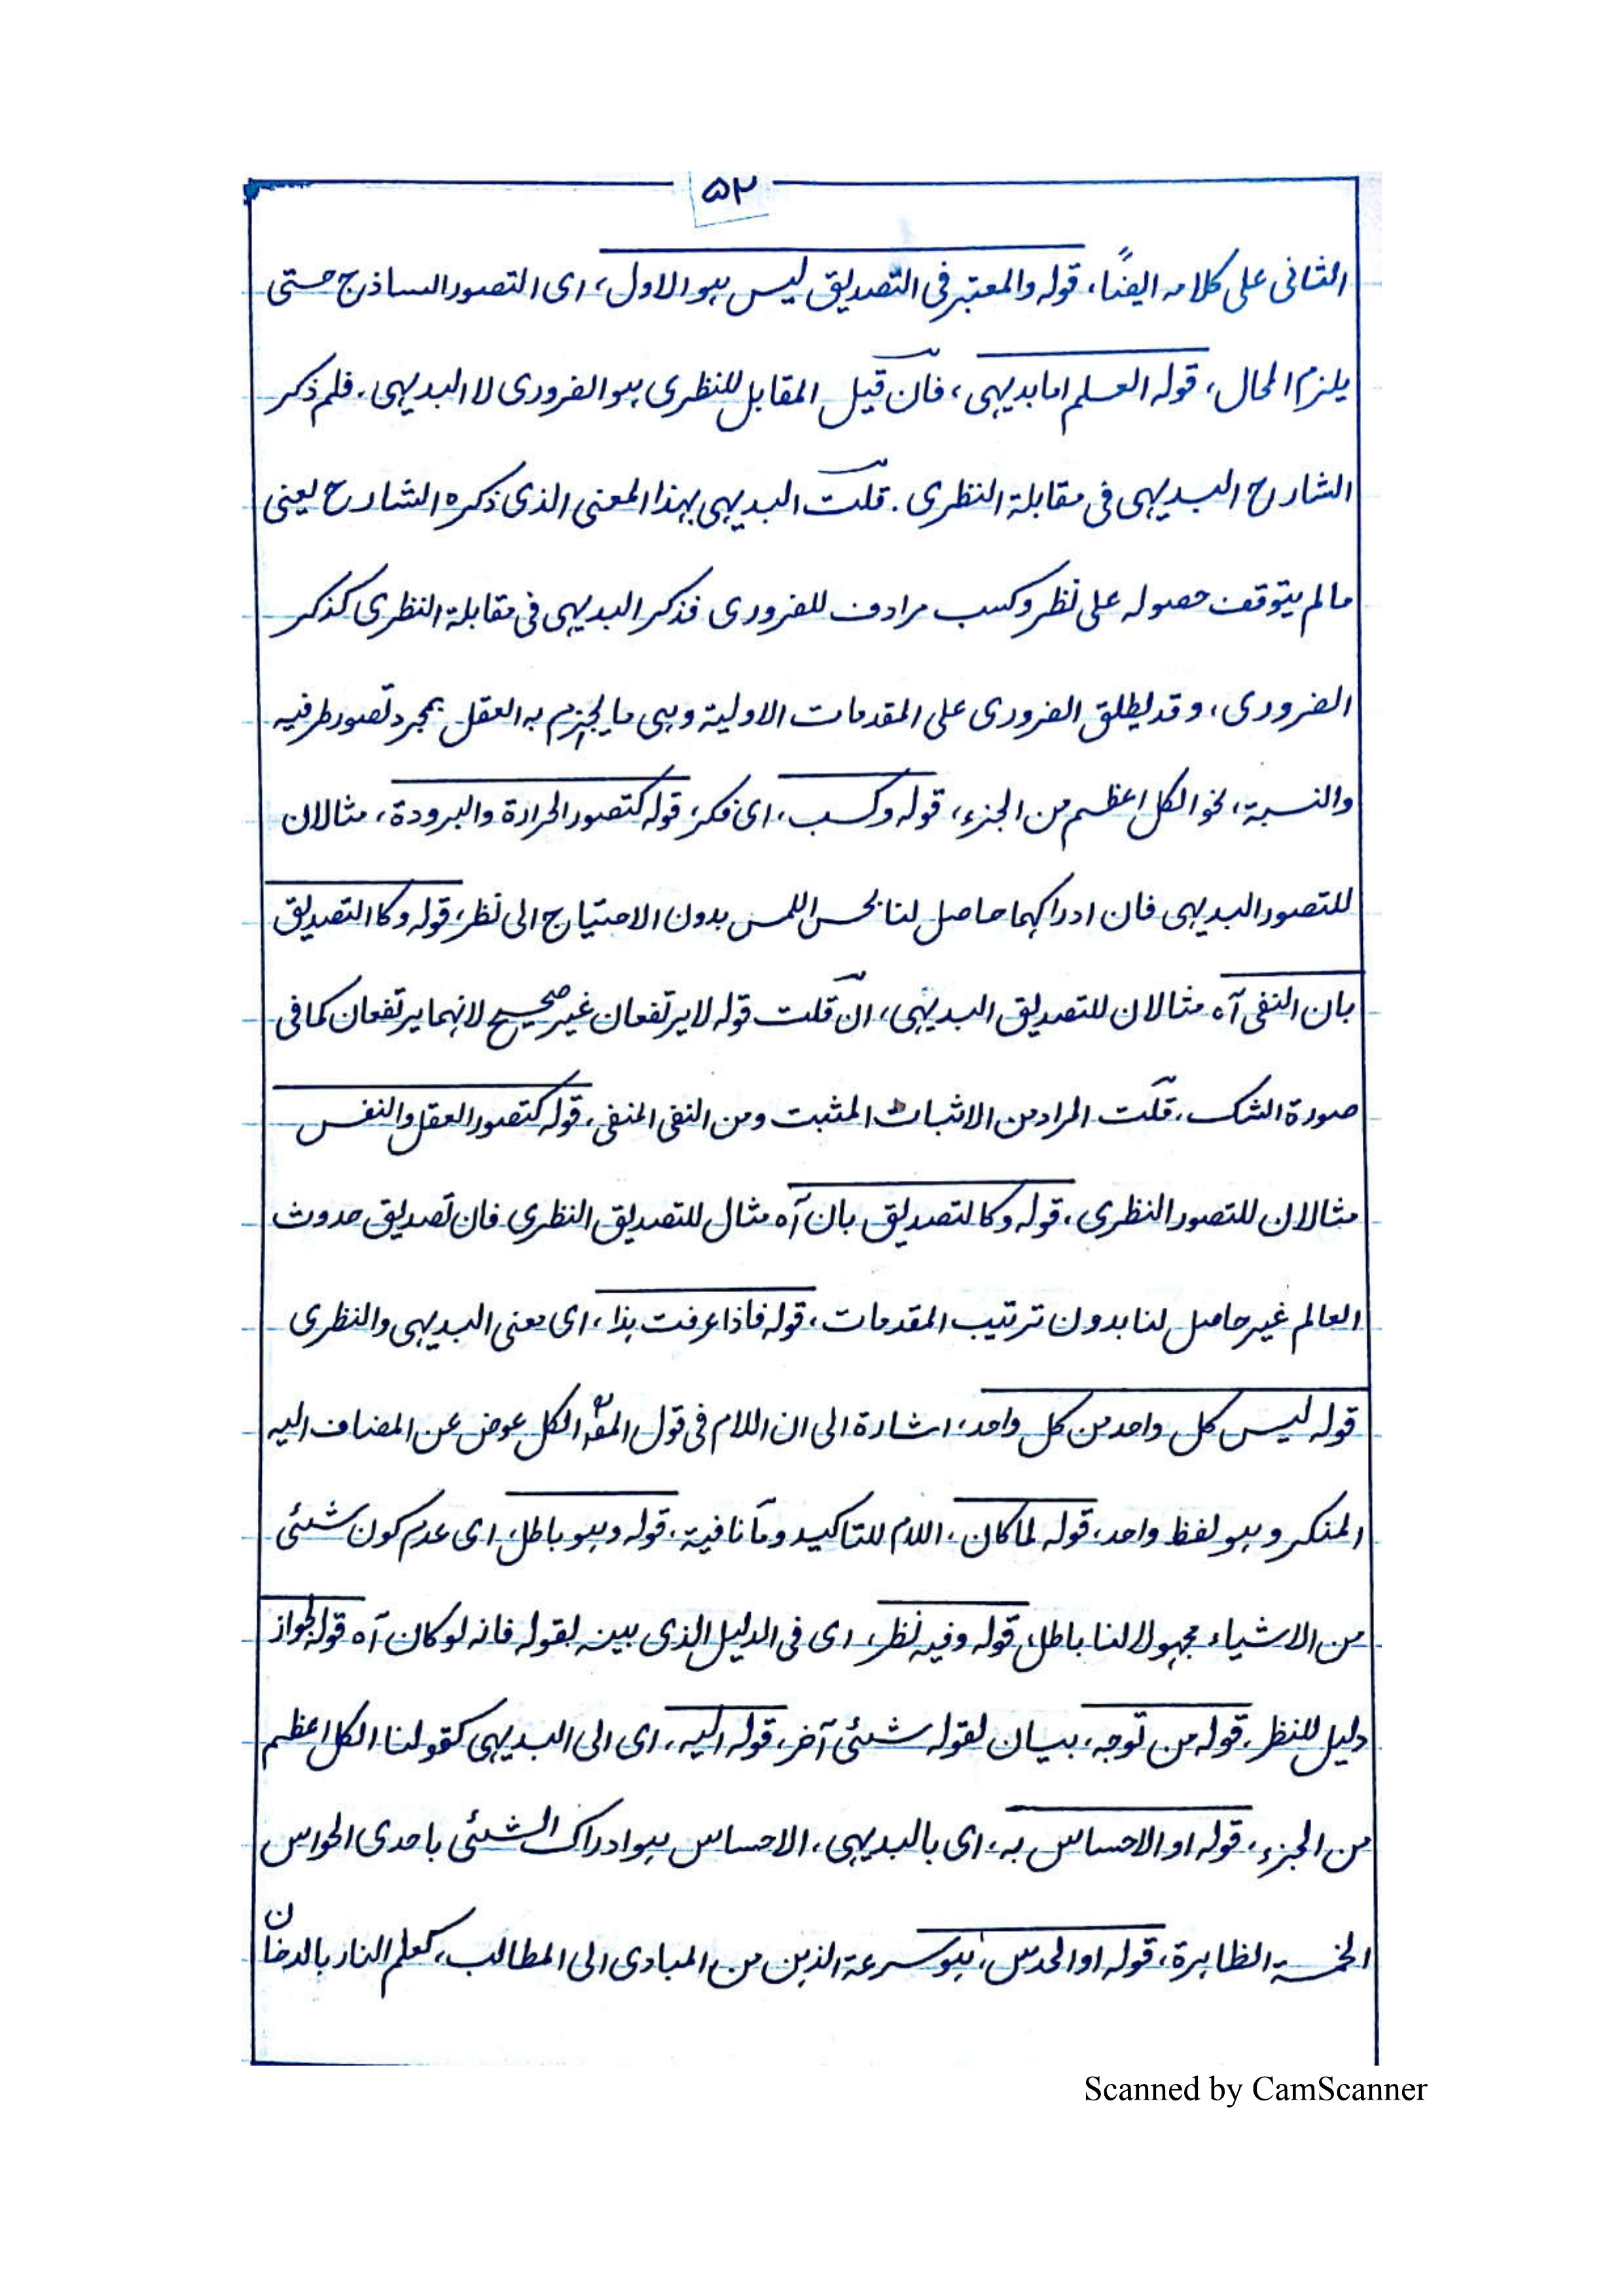 ۵۲
الثانی علی کلامہ ایضًا، قولہ والمعتبر فی التصدیق لیس ہو الاول، ای التصور الساذج حتی
یلزم المحال، قولہ العلم اما بدیہی، فان قیل المقابل للنظری ہو الضروری لا البدیہی. فلم ذکر
الشارح البدیہی فی مقابلة النظری. قلت البدیہی بہذا المعنی الذی ذکرہ الشارح یعنی
مالم یتوقف حصولہ علی نظر وکسب مرادف للضروری فذکر البدیہی فی مقابلة النظری کذکر
الضروری، وقد یطلق الضروری علی المقدمات الاولیة وہی ما یجزم بہ العقل بمجرد تصور طرفیہ
والنسبة، نحو الکل اعظم من الجزء، قولہ وکسب، ای فکر، قولہ کتصور الحرارة والبرودة، مثالان
للتصور البدیہی فان ادراکہما حاصل لنا بحس اللمس بدون الاحتیاج الی نظر، قولہ وکالتصدیق
بان النفی آہ مثالان للتصدیق البدیہی، ان قلت قولہ لا یرتفعان غیر صحیح لانہما یرتفعان کما فی
صورة الشک، قلت المراد من الاثبات المثبت ومن النفی المنفی، قولہ کتصور العقل والنفس
مثالان للتصور النظری، قولہ وکالتصدیق بان آہ مثال للتصدیق النظری فان تصدیق حدوث
العالم غیر حاصل لنا بدون ترتیب المقدمات، قولہ فاذا عرفت ہذا، ای معنی البدیہی والنظری
قولہ لیس کل واحد من کل واحد، اشارة الی ان اللام فی قول المصؒ الکل عوض عن المضاف الیہ
المنکر وہو لفظ واحد، قولہ لما کان، اللام للتاکید وما نافیة، قولہ وہو باطل، ای عدم کون شئی
من الاشیاء مجہولا لنا باطل، قولہ وفیہ نظر، ای فی الدلیل الذی بینہ بقولہ فانہ لوکان آہ قولہ لجواز
دلیل للنظر، قولہ من توجہ، بیان لقولہ شئی آخر، قولہ الیہ، ای الی البدیہی کقولنا الکل اعظم
من الجزء، قولہ او الاحساس بہ، ای بالبدیہی، الاحساس ہو ادراک الشئی باحدی الحواس
الخمسة الظاہرة، قولہ او الحدس، ہو سرعة الذہن من المبادی الی المطالب، کعلم النار بالدخان
Scanned by CamScanner